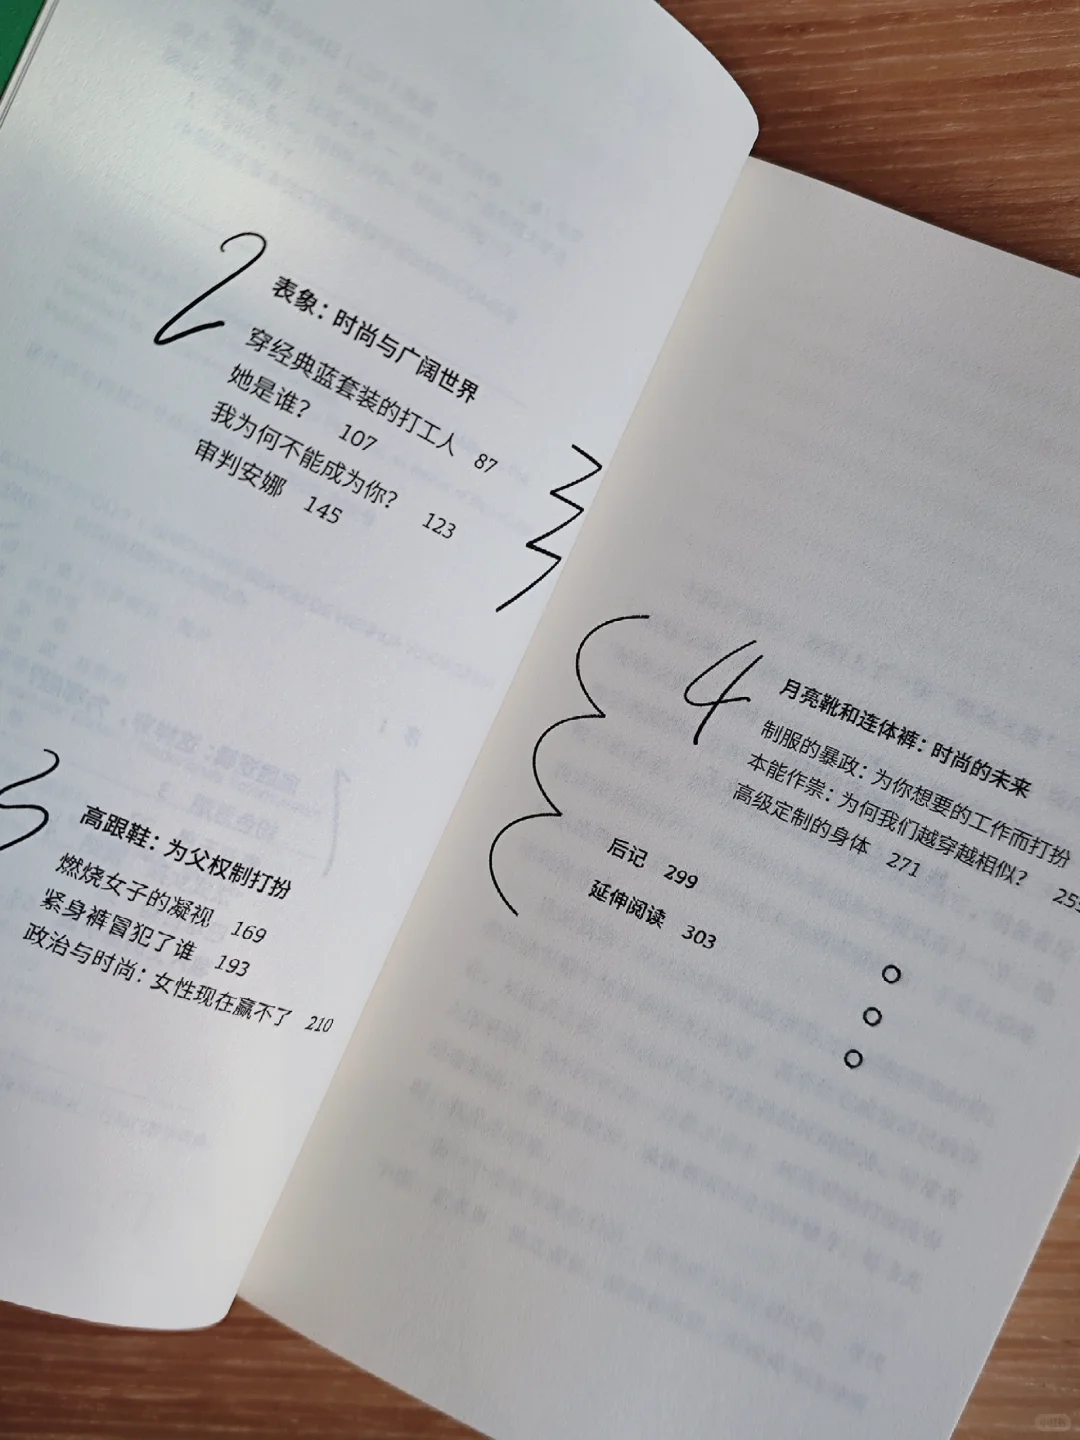 2
表象：时尚与广阔世界
穿经典蓝套装的打工人 87
她是谁？ 107
我为何不能成为你？ 123
审判安娜 145
3
高跟鞋：为父权制打扮
燃烧女子的凝视 169
紧身裤冒犯了谁 193
政治与时尚：女性现在赢不了 210
4
月亮靴和连体裤：时尚的未来
制服的暴政：为你想要的工作而打扮
本能作祟：为何我们越穿越相似？
高级定制的身体 271
后记 299
延伸阅读 303
小红书